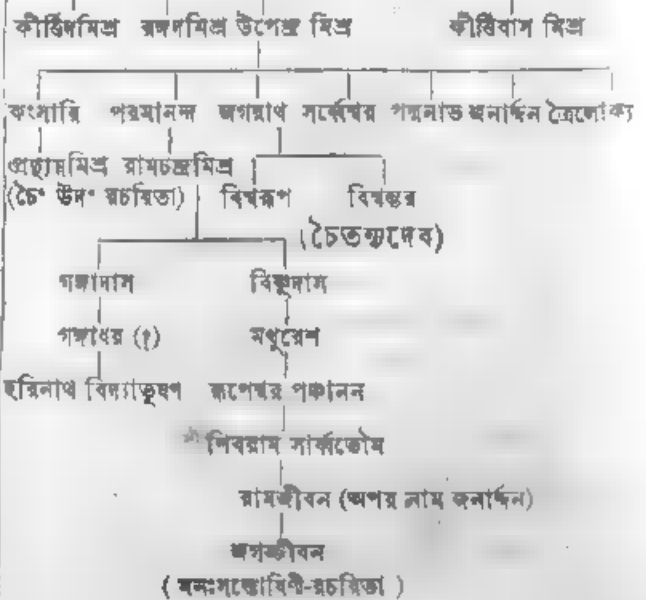 কীর্ত্তিদমিশ্র রঙ্গদমিশ্র উপেন্দ্র মিশ্র কীর্ত্তিবাস মিশ্র
কংসারি পরমানন্দ জগন্নাথ সর্ব্বেশ্বর পদ্মনাভ জনার্দ্দন ত্রৈলোক্য
প্রদ্যুম্নমিশ্র রামচন্দ্রমিশ্র
(চৈ° উদ° রচয়িতা) বিশ্বরূপ বিশ্বম্ভর
(চৈতন্যদেব)
গঙ্গাদাস বিষ্ণুদাস
গঙ্গাধর (?) মথুরেশ
হরিনাথ বিদ্যাভূষণ রূপেশ্বর পঞ্চানন
শিবরাম সার্ব্বভৌম
রামজীবন (অপর নাম জনার্দ্দন)
জগজ্জীবন
(মনঃসন্তোষিণী-রচয়িতা)